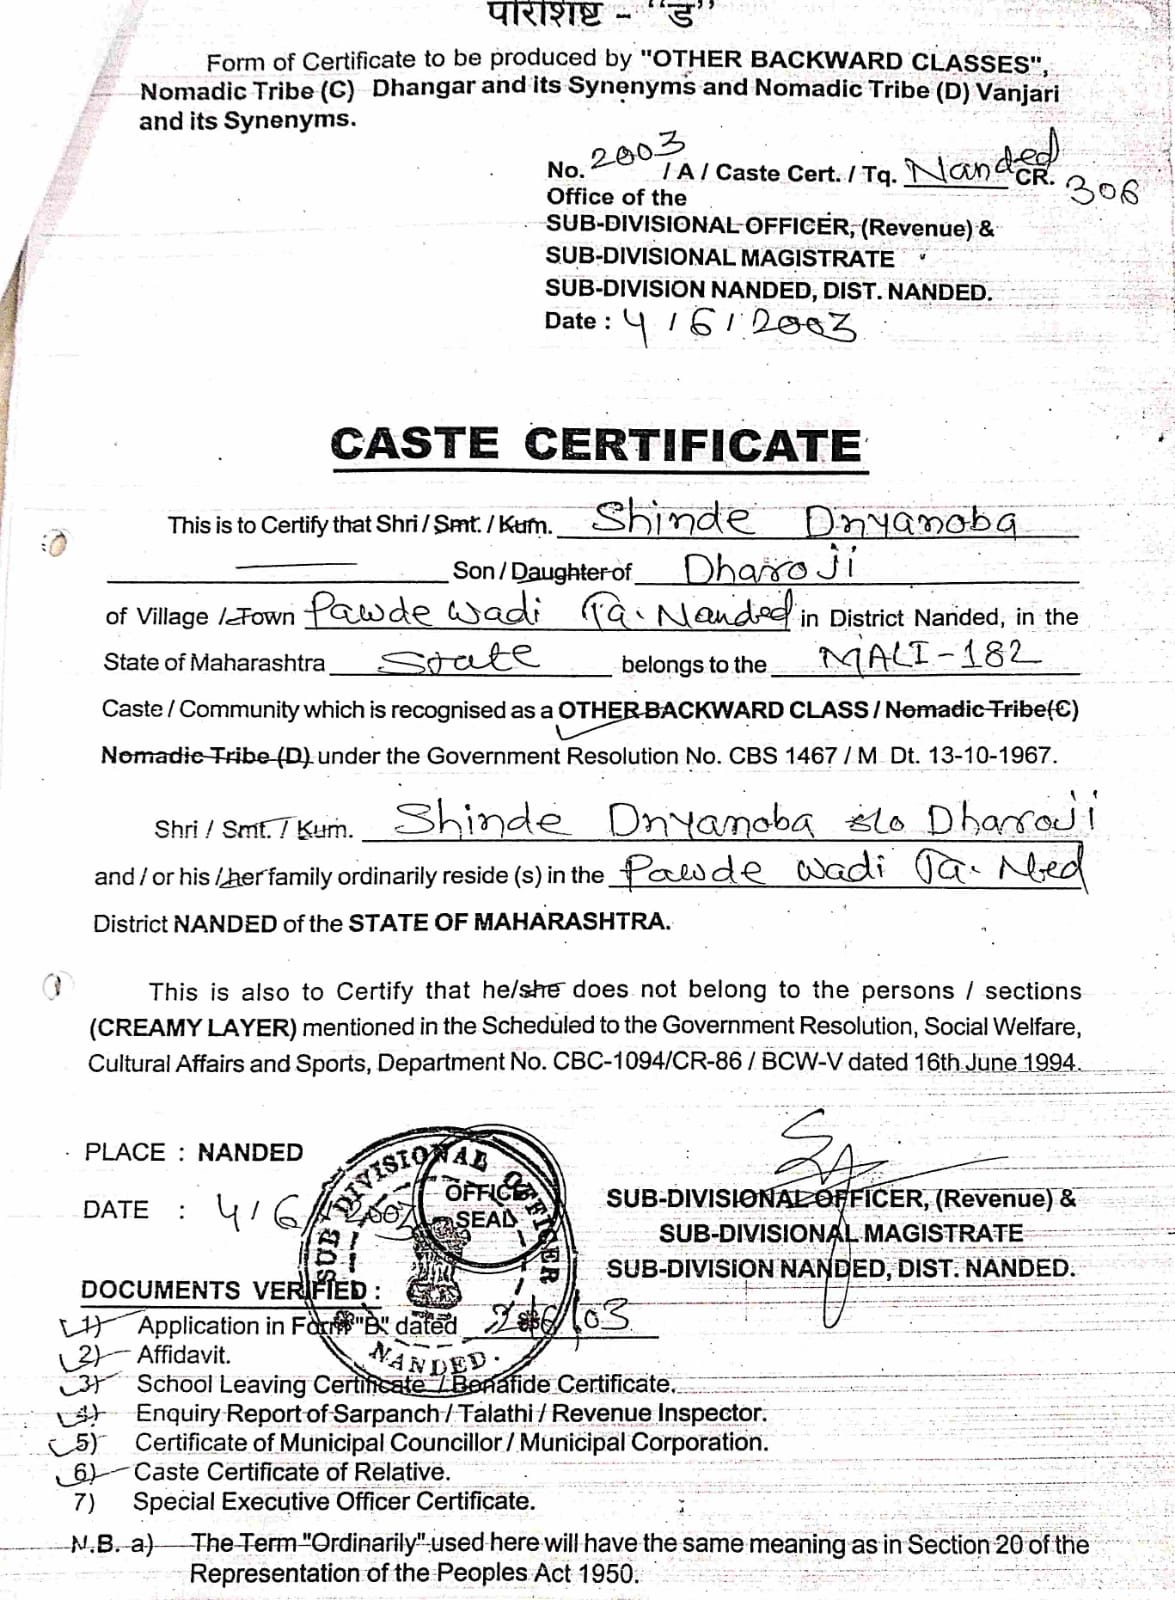 परिशिष्ट - "ड"
Form of Certificate to be produced by "OTHER BACKWARD CLASSES",
Nomadic Tribe (C) Dhangar and its Synenyms and Nomadic Tribe (D) Vanjari
and its Synenyms.
No. 2003 / A / Caste Cert. / Tq. Nanded CR. 306
Office of the
SUB-DIVISIONAL OFFICER, (Revenue) &
SUB-DIVISIONAL MAGISTRATE
SUB-DIVISION NANDED, DIST. NANDED.
Date : 4/6/2003
CASTE CERTIFICATE
This is to Certify that Shri / Smt. / Kum. Shinde Dnyanoba
Son / Daughter of Dharoji
of Village / Town Pawde wadi Ta. Nanded in District Nanded, in the
State of Maharashtra State belongs to the MALI-182
Caste / Community which is recognised as a OTHER BACKWARD CLASS / Nomadic Tribe (C)
Nomadic Tribe (D) under the Government Resolution No. CBS 1467 / M Dt. 13-10-1967.
Shri / Smt. / Kum. Shinde Dnyanoba s/o Dharoji
and / or his / her family ordinarily reside (s) in the Pawde wadi Ta. Nbed
District NANDED of the STATE OF MAHARASHTRA.
This is also to Certify that he/she does not belong to the persons / sections
(CREAMY LAYER) mentioned in the Scheduled to the Government Resolution, Social Welfare,
Cultural Affairs and Sports, Department No. CBC-1094/CR-86 / BCW-V dated 16th June 1994.
PLACE : NANDED
DATE : 4/6/2003
SUB DIVISIONAL OFFICER
OFFICE
SEAL
NANDED.
SUB-DIVISIONAL OFFICER, (Revenue) &
SUB-DIVISIONAL MAGISTRATE
SUB-DIVISION NANDED, DIST. NANDED.
DOCUMENTS VERIFIED :
1) Application in Form "B" dated
2) Affidavit.
3) School Leaving Certificate / Bonafide Certificate.
4) Enquiry Report of Sarpanch / Talathi / Revenue Inspector.
5) Certificate of Municipal Councillor / Municipal Corporation.
6) Caste Certificate of Relative.
7) Special Executive Officer Certificate.
N.B. a) The Term "Ordinarily" used here will have the same meaning as in Section 20 of the
Representation of the Peoples Act 1950.